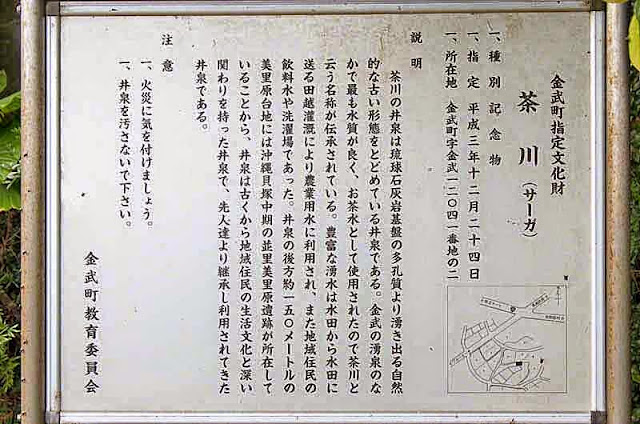 金武町指定文化財
茶川(サーガ)
一、種別 記念物
一、指定 平成三年十二月二十四日
一、所在地 金武町字金武一二〇四一番地の二
説明
茶川の井泉は琉球石灰岩基盤の多孔質より湧き出る自然
的な古い形態をとどめている井泉である。金武の湧泉のな
かで最も水質が良く、お茶水として使用されたので茶川と
云う名称が伝承されている。豊富な湧水は水田から水田に
送る田越灌漑により農業用水に利用され、また地域住民の
飲料水や洗濯場であった。井泉の後方約一五〇メートルの
美里原台地には沖縄貝塚中期の並里美里原遺跡が所在して
いることから、井泉は古くから地域住民の生活文化と深い
関わりを持った井泉で、先人達より継承し利用されてきた
井泉である。
注意
一、火災に気を付けましょう。
一、井泉を汚さないで下さい。
金武町教育委員会